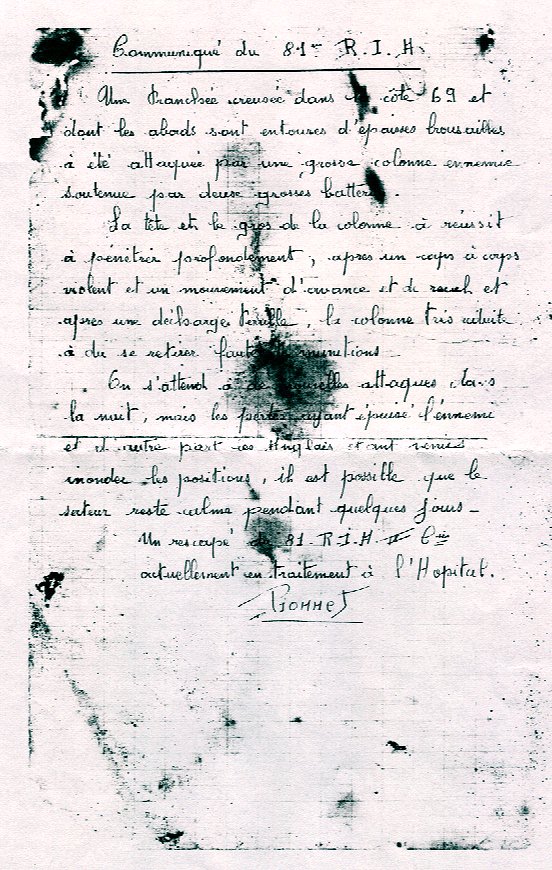 Communiqué du 81e R.I.H.
Une tranchée creusée dans la côte 69 et
dont les abords sont entourés d'épaisses brousailles
à été attaquée par une grosse colonne ennemie
soutenue par deux grosses batteries.
La tête et le gros de la colonne à réussit
à pénétrer profondement, apres un corps à corps
violent et un mouvement d'avance et de recul et
après une décharge terrible, la colonne très réduite
à du se retirer faute de munitions
On s'attend à de nouvelles attaques dans
la nuit, mais les pertes ayant épuisé l'ennemi
et d'autre part les Anglais étant venus
inonder les positions, il est possible que le
secteur reste calme pendant quelques jours_
Un rescapé du 81 R.I.H Cie
actuellement en traitement à l'Hopital.
BONNET